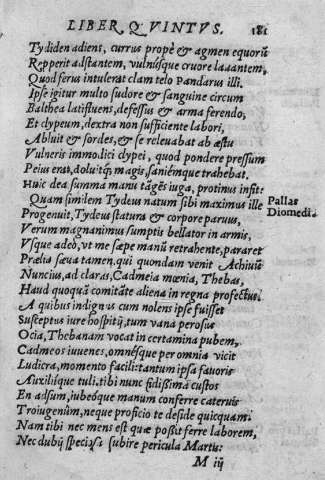 LIBER QVINTVS. 181
Tydiden adient, currus propè & agmen equorũ
Repperit adstantem, vulnúsque cruore lauantem,
Quod ferus intulerat clam telo Pandarus illi.
Ipse igitur multo sudore & sanguine circum
Balthea latifluens, defessus & arma ferendo,
Et clypeum, dextra non sufficiente labori,
Abluit & sordes, & se releuabat ab æstu
Vulneris immodici clypei, quod pondere pressum
Peius erat, doluitq́; magis, saniémque trahebat.
Huic dea summa manu tãgẽs iuga, protinus infit:
Quam similem Tydeus natum sibi maximus ille
Pallas
Diomedi
Progenuit, Tydeus statura & corpore paruus,
Verum magnanimus sumptis bellator in armis,
Vsque adeò, vt me sæpe manũ retrahente, pararet
Prælia sæua tamen, qui quondam venit Achiuũ
Nuncius, ad claras, Cadmeia mœnia, Thebas,
Haud quoquã comitãte aliena in regna profectus.
A quibus indignis cum nolens ipse fuisset
Susceptus iure hospitij, tum vana perosus
Ocia, Thebanam vocat in certamina pubem,
Cadmeos iuuenes, omnésque per omnia vicit
Ludicra, momento facili: tantum ipsa fauoris
Auxilíque tuli. tibi nunc fidißima custos
En adsum, iubeóque manum conferre cateruis
Troiugenûm, neque proficio te deside quicquam.
Nam tibi nec mens est quæ poßit ferre laborem,
Nec dubij species subire pericula Martis:
M iij